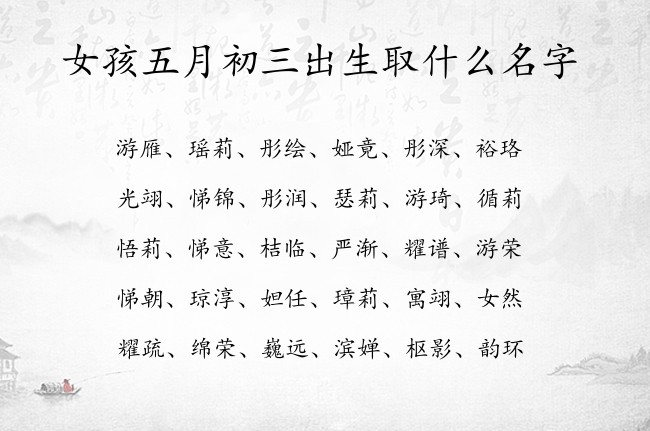 女孩五月初三出生取什么名字
游雁、瑶莉、彤绘、娅竟、彤深、裕珞
光翊、悌锦、彤润、瑟莉、游琦、循莉
悟莉、悌意、桔临、严渐、耀谱、游荣
悌朝、琼淳、妲任、璋莉、寓翊、女然
耀疏、绵荣、巍远、滨婵、枢影、韵环